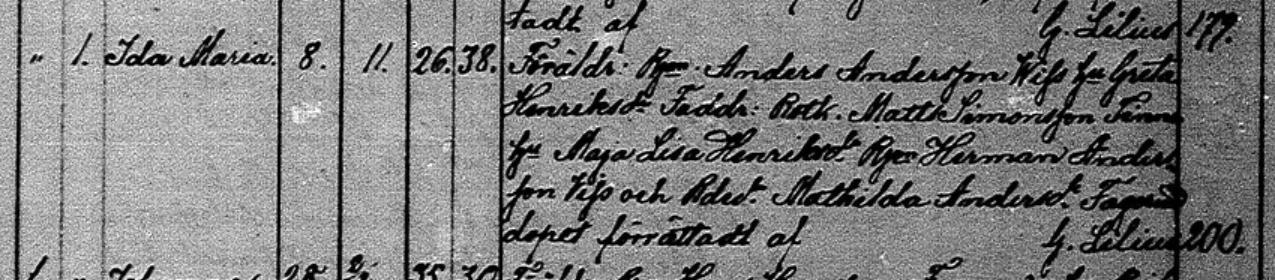 tadt af G. Lilius 179.
" 1. Ida Maria. 8. 11. 26. 38. Föräldr: Anders Andersson Wiss hu Greta
Henriksdr Faddr: Rotk. Matts Simonsson Finne
hu Maja Lisa Henriksdr Herman Anders
son Viss och Mathilda Andersdr
dopet förrättadt af G. Lilius 200.